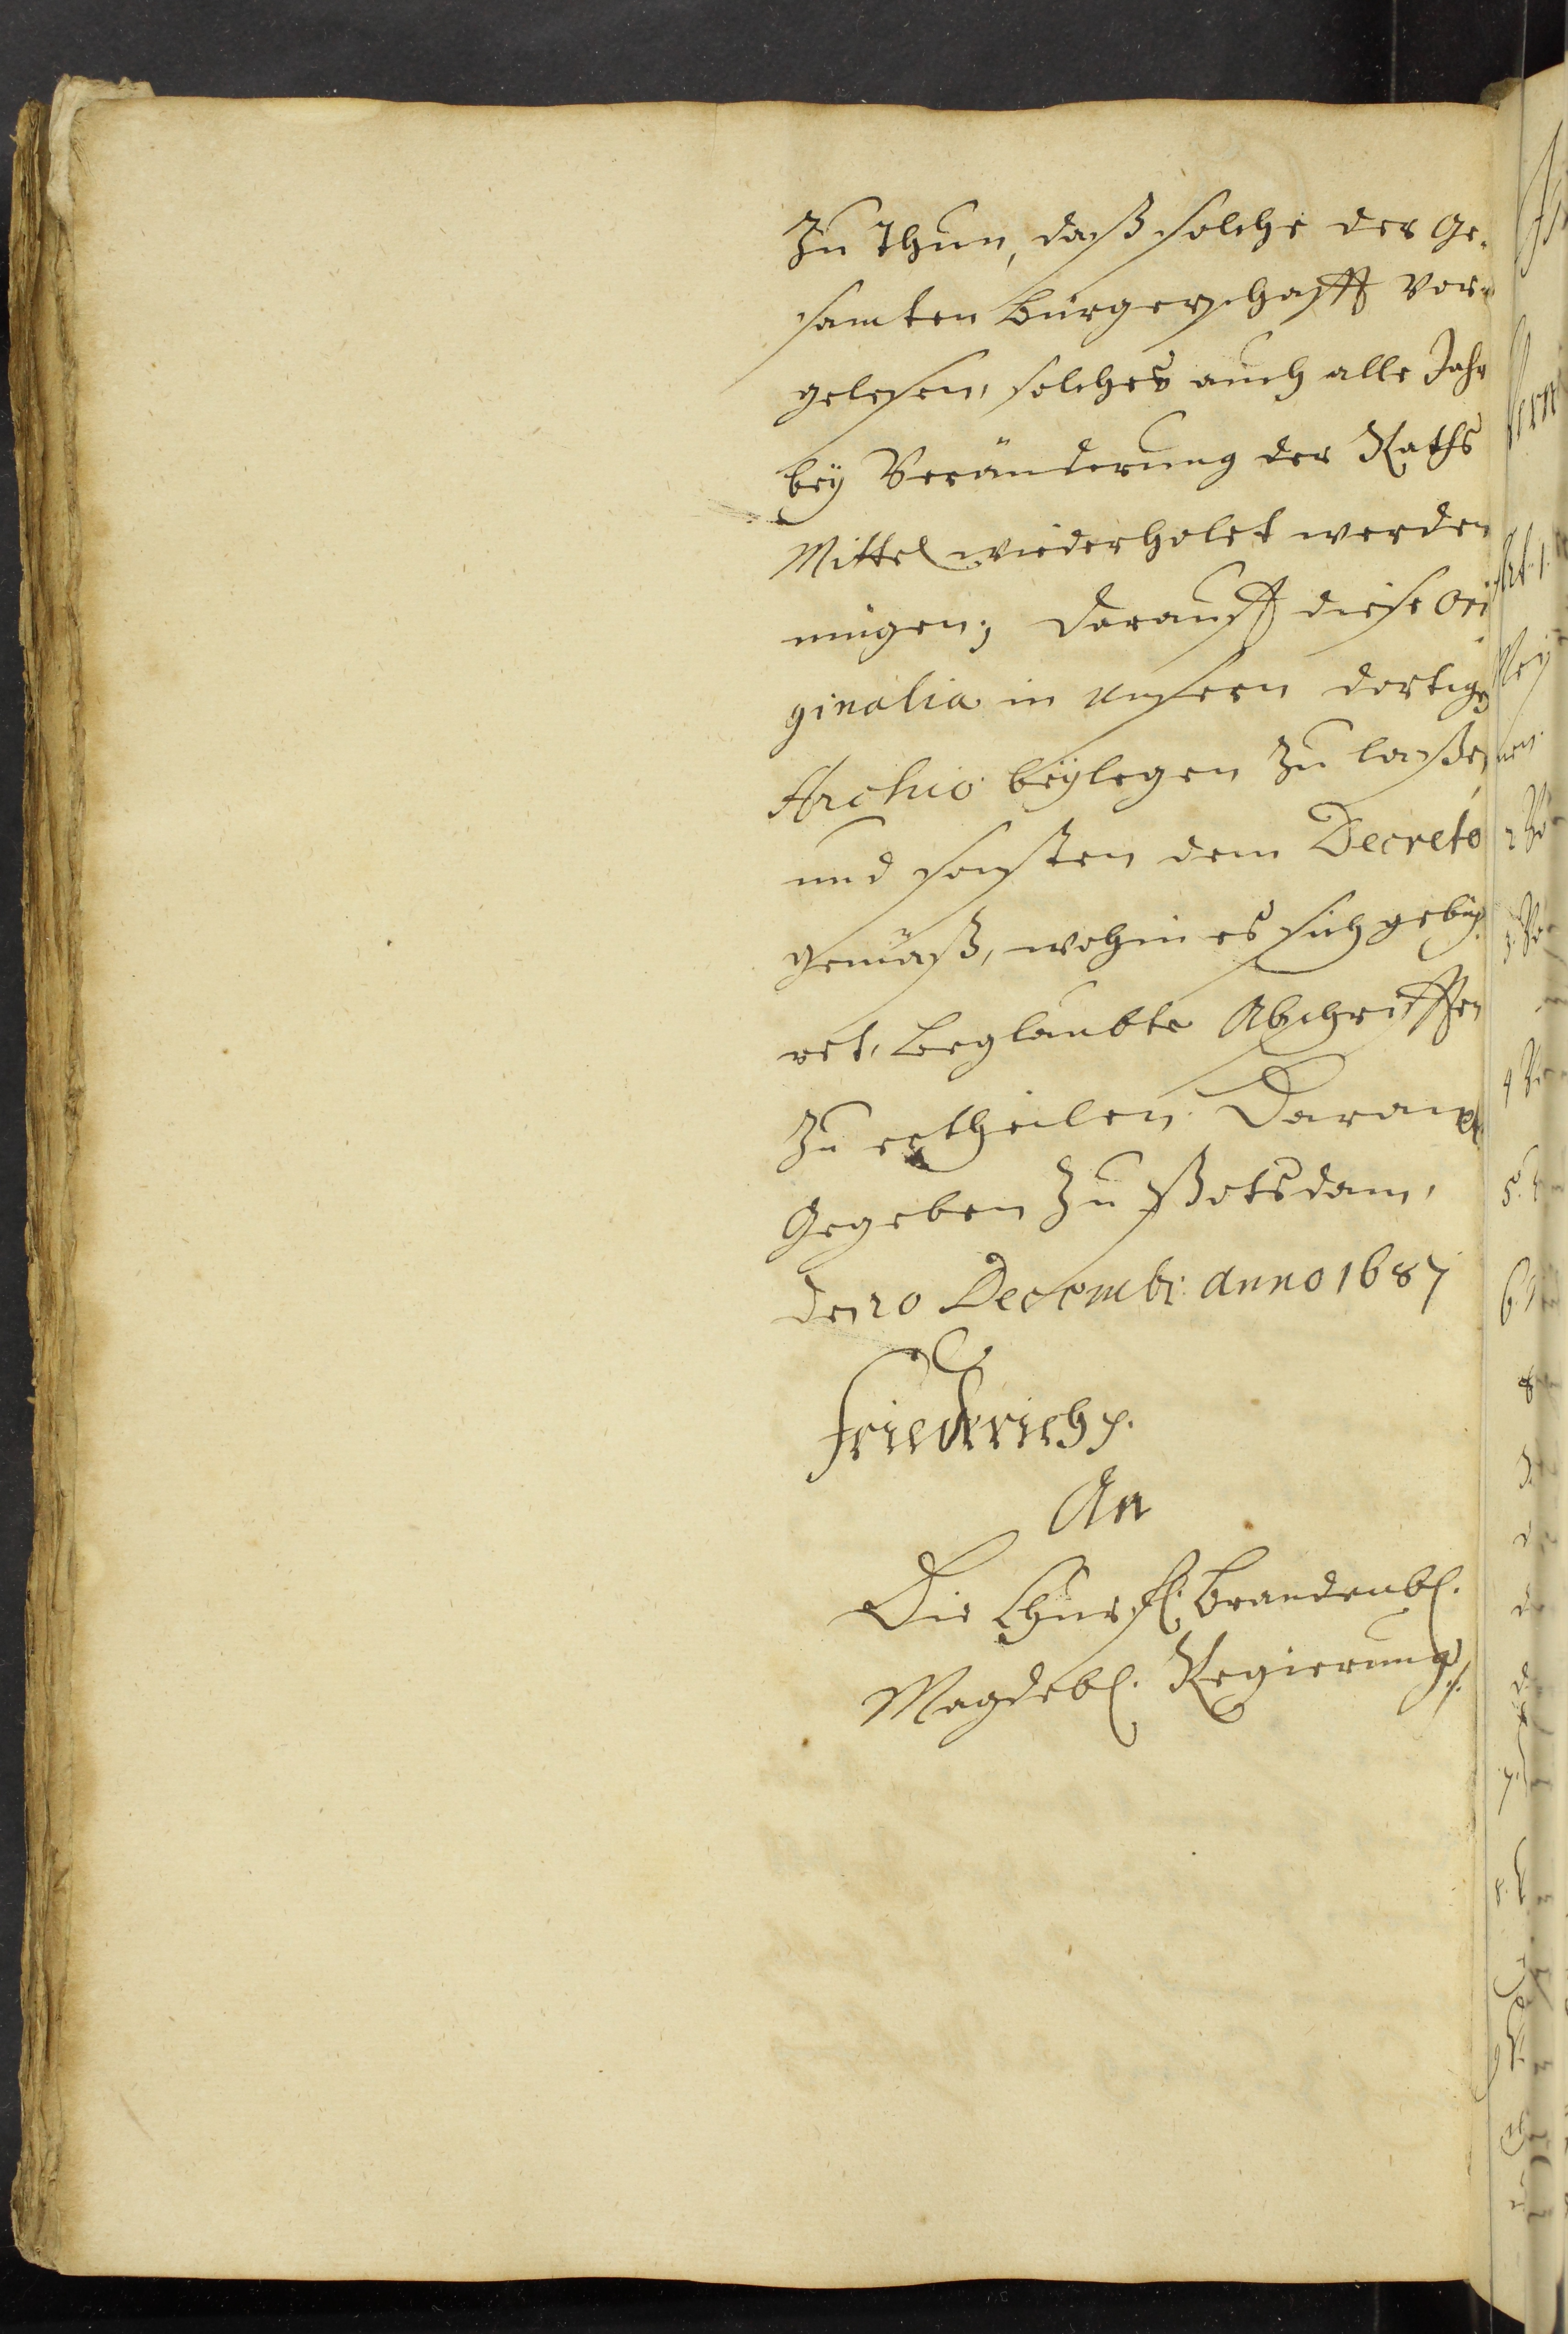 Zu Thun, daß solche der Ge-
samten Bürgerschafft vor-
gelesen, solches auch alle Jahr
beÿ Veränderung der Raths
Mittel wiederholet werden
mügen; Darauff diese Ori
ginalia in unsern dortigen
Archiv beÿlegen Zu laßen
und sonsten dem Decreto
gemäß, wohin es sich gebüh
ret, beglaubte Abschrifften
Zu ertheilen. Daran
Gegeben Zu Potsdam,
den 20 Decembr: anno 1687
Friederich
An
Die Churfl. Brandenbl.
Magdebl. Regierung